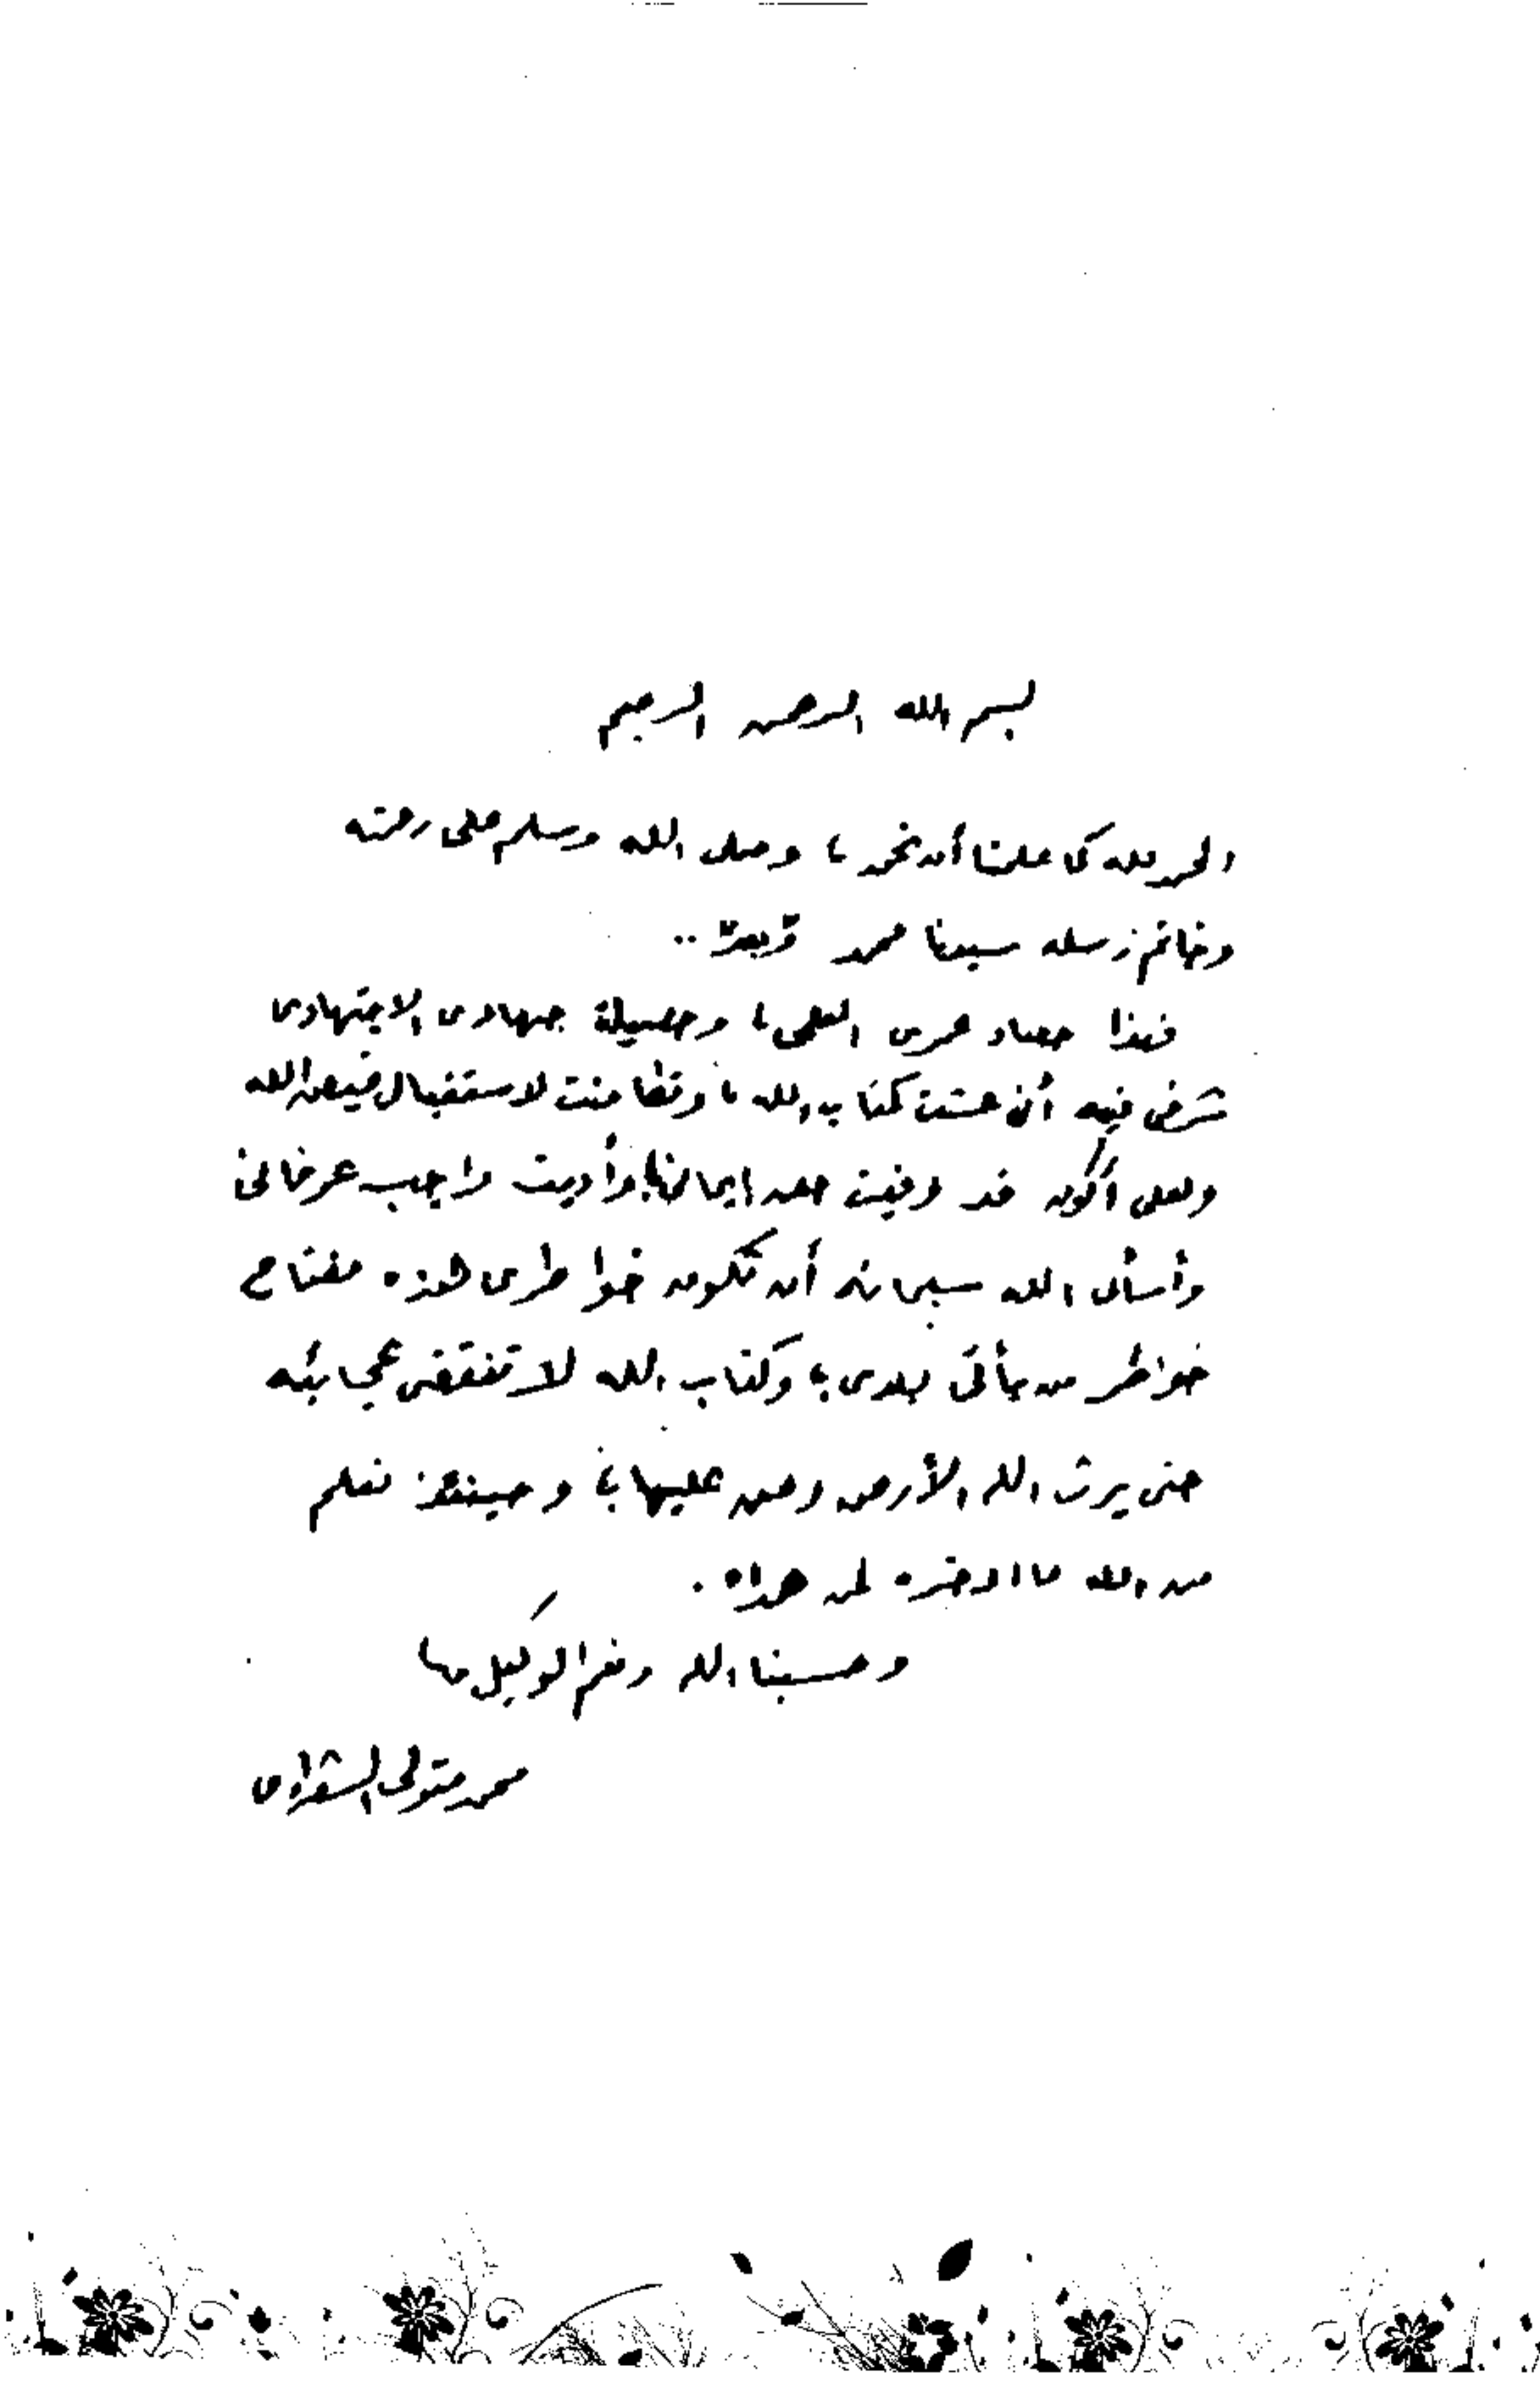 بسم الله الرحمن الرحيم
الحمد لله كما علمنا أن نحمد ، وصلى الله وسلم على رحمته
وخاتم رسله سيدنا محمد وبعد ..
فهذا حصاد عمرى العلمى ، وحصيلة جهادى الاجتهادى
شرفى فيه أنى عشت كتاب الله ، وتطامنت لاستقبال فيض الله
ولعلى أكون قد وفيت حق إيمانى ، وأديت واجب عرفانى
وأسأل الله سبحانه أن تكون خواطرى هذه مفتاح
خواطر من يأتى بعدى ؛ وكتاب الله لا تنقضى عجائبه
حتى يرث الله الأرض ومن عليها ؛ وحينئذ نعلم
من الله ما ادخره لمن هداه .
وحسبنا الله ونعم الوكيل
محمد متولى الشعراوى